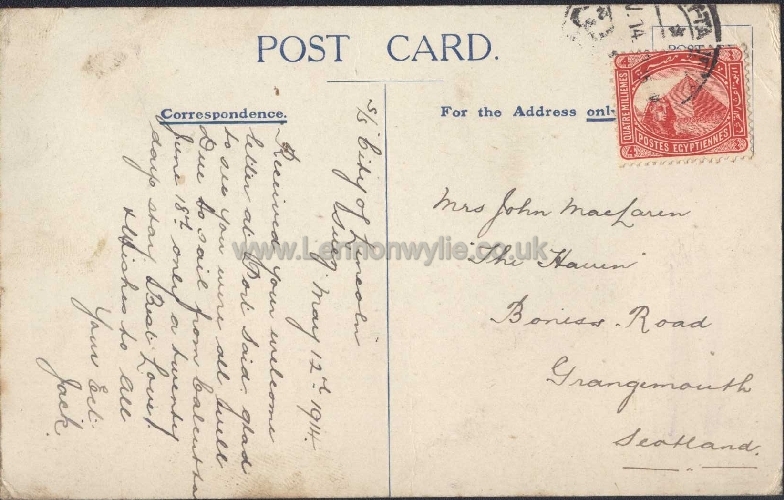 POST CARD.
Correspondence.
S/S City of Lincoln
May 12th 1914.
Received your welcome
letter at Port Said, glad
to see you were all well
Due to sail from Calcutta
June 18th only a twenty
days stay Best Love &
Wishes to all
Your
Jack.
For the Address only
Mrs John MacLaren
"The Haven"
Boness. Road
Grangemouth
Scotland.
4 4
QUATRE MILLIEMES
POSTES EGYPTIENNES
4 4
POST
V. 14
TA
www.Lennonwylie.co.uk